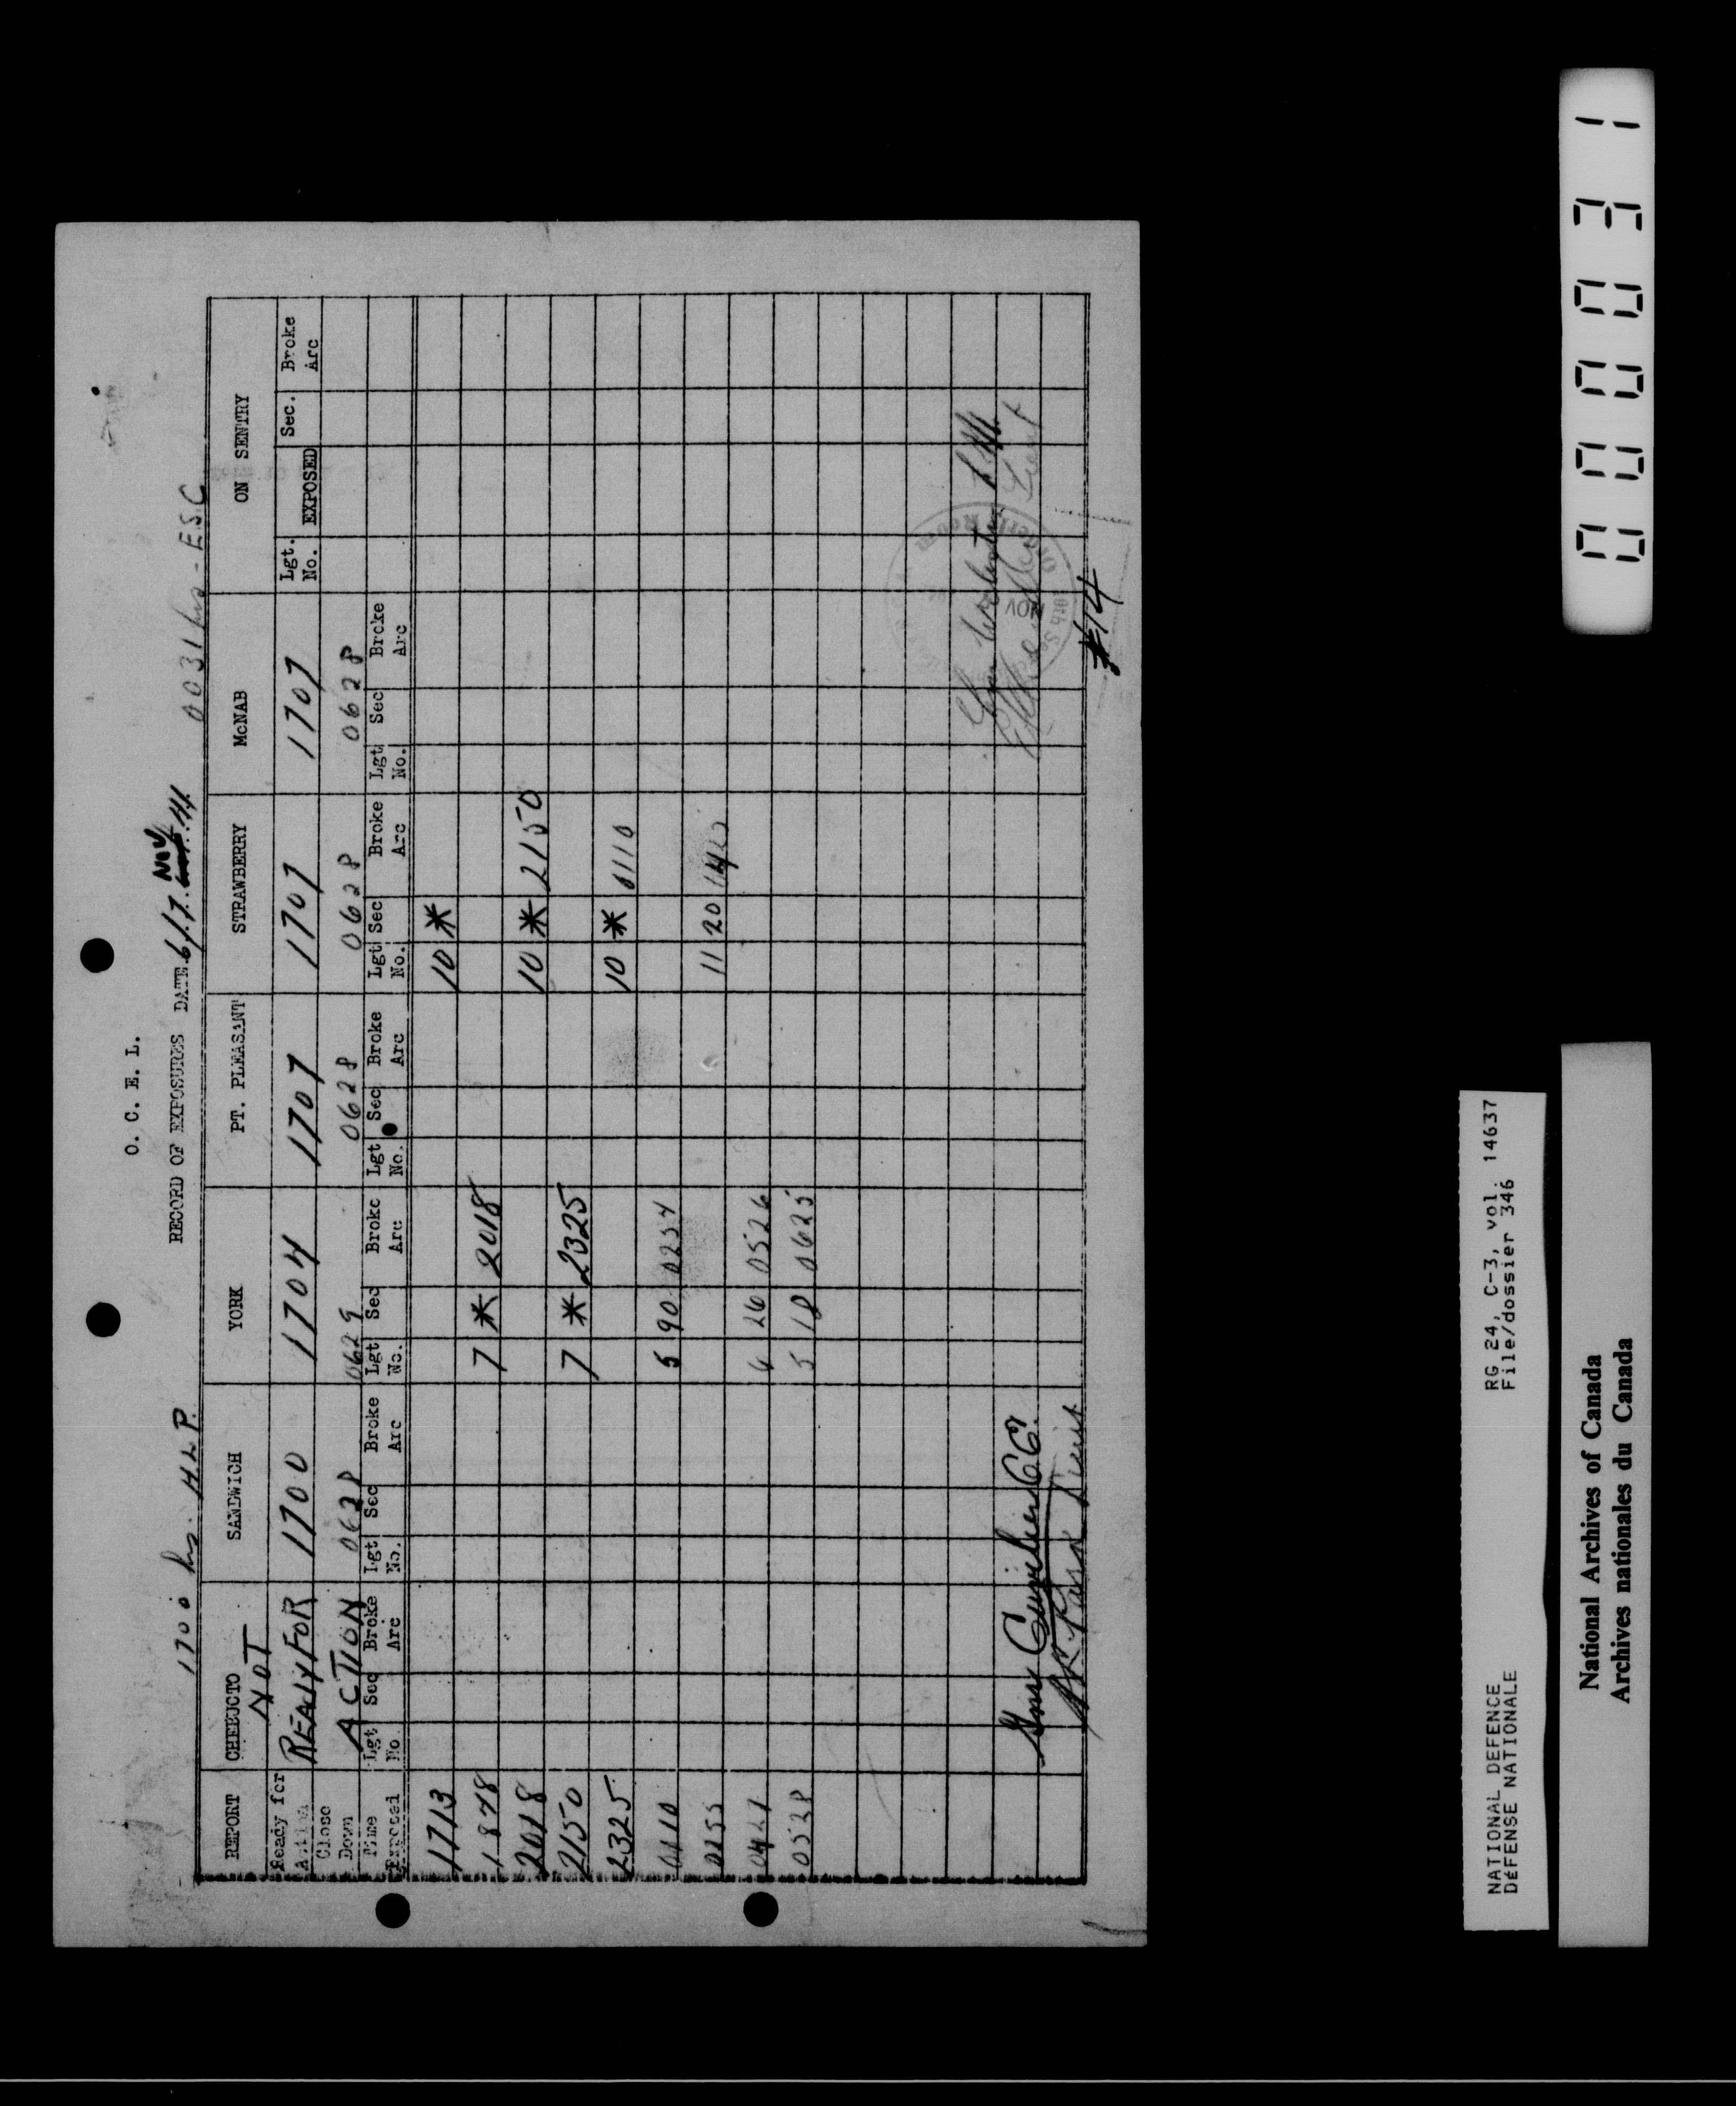 O. C. E. L.
RECORD OF EXPOSURES DATE 6/7. Nov. 41.
1700 hrs. H L P. 0031 hrs - E.S.C
REPORT CHEBUCTO SANDWICH YORK PT. PLEASANT STRAWBERRY McNAB ON SENTRY
Ready for Action NOT READY FOR ACTION 1700 1704 1707 1707 1707 Lgt. No. EXPOSED Sec. Broke Arc
Close Down 0628 0629 0628 0628 0628
Time Exposed Lgt No. Sec Broke Arc Lgt No. Sec Broke Arc Lgt No. Sec Broke Arc Lgt No. Sec Broke Arc Lgt No. Sec Broke Arc Lgt No. Sec Broke Arc
1713 10 *
1848 7 * 2018
2018 10 * 2150
2150 7 * 2325
2325 10 * 0110
0110 5 90 0254
0255 11 20
0421 6 26 0526
0528 5 18 0625
Lieut
Lieut
NOV
#14
0000031
NATIONAL DEFENCE RG 24, C-3, vol. 14637
DÉFENSE NATIONALE File/dossier 346
National Archives of Canada
Archives nationales du Canada